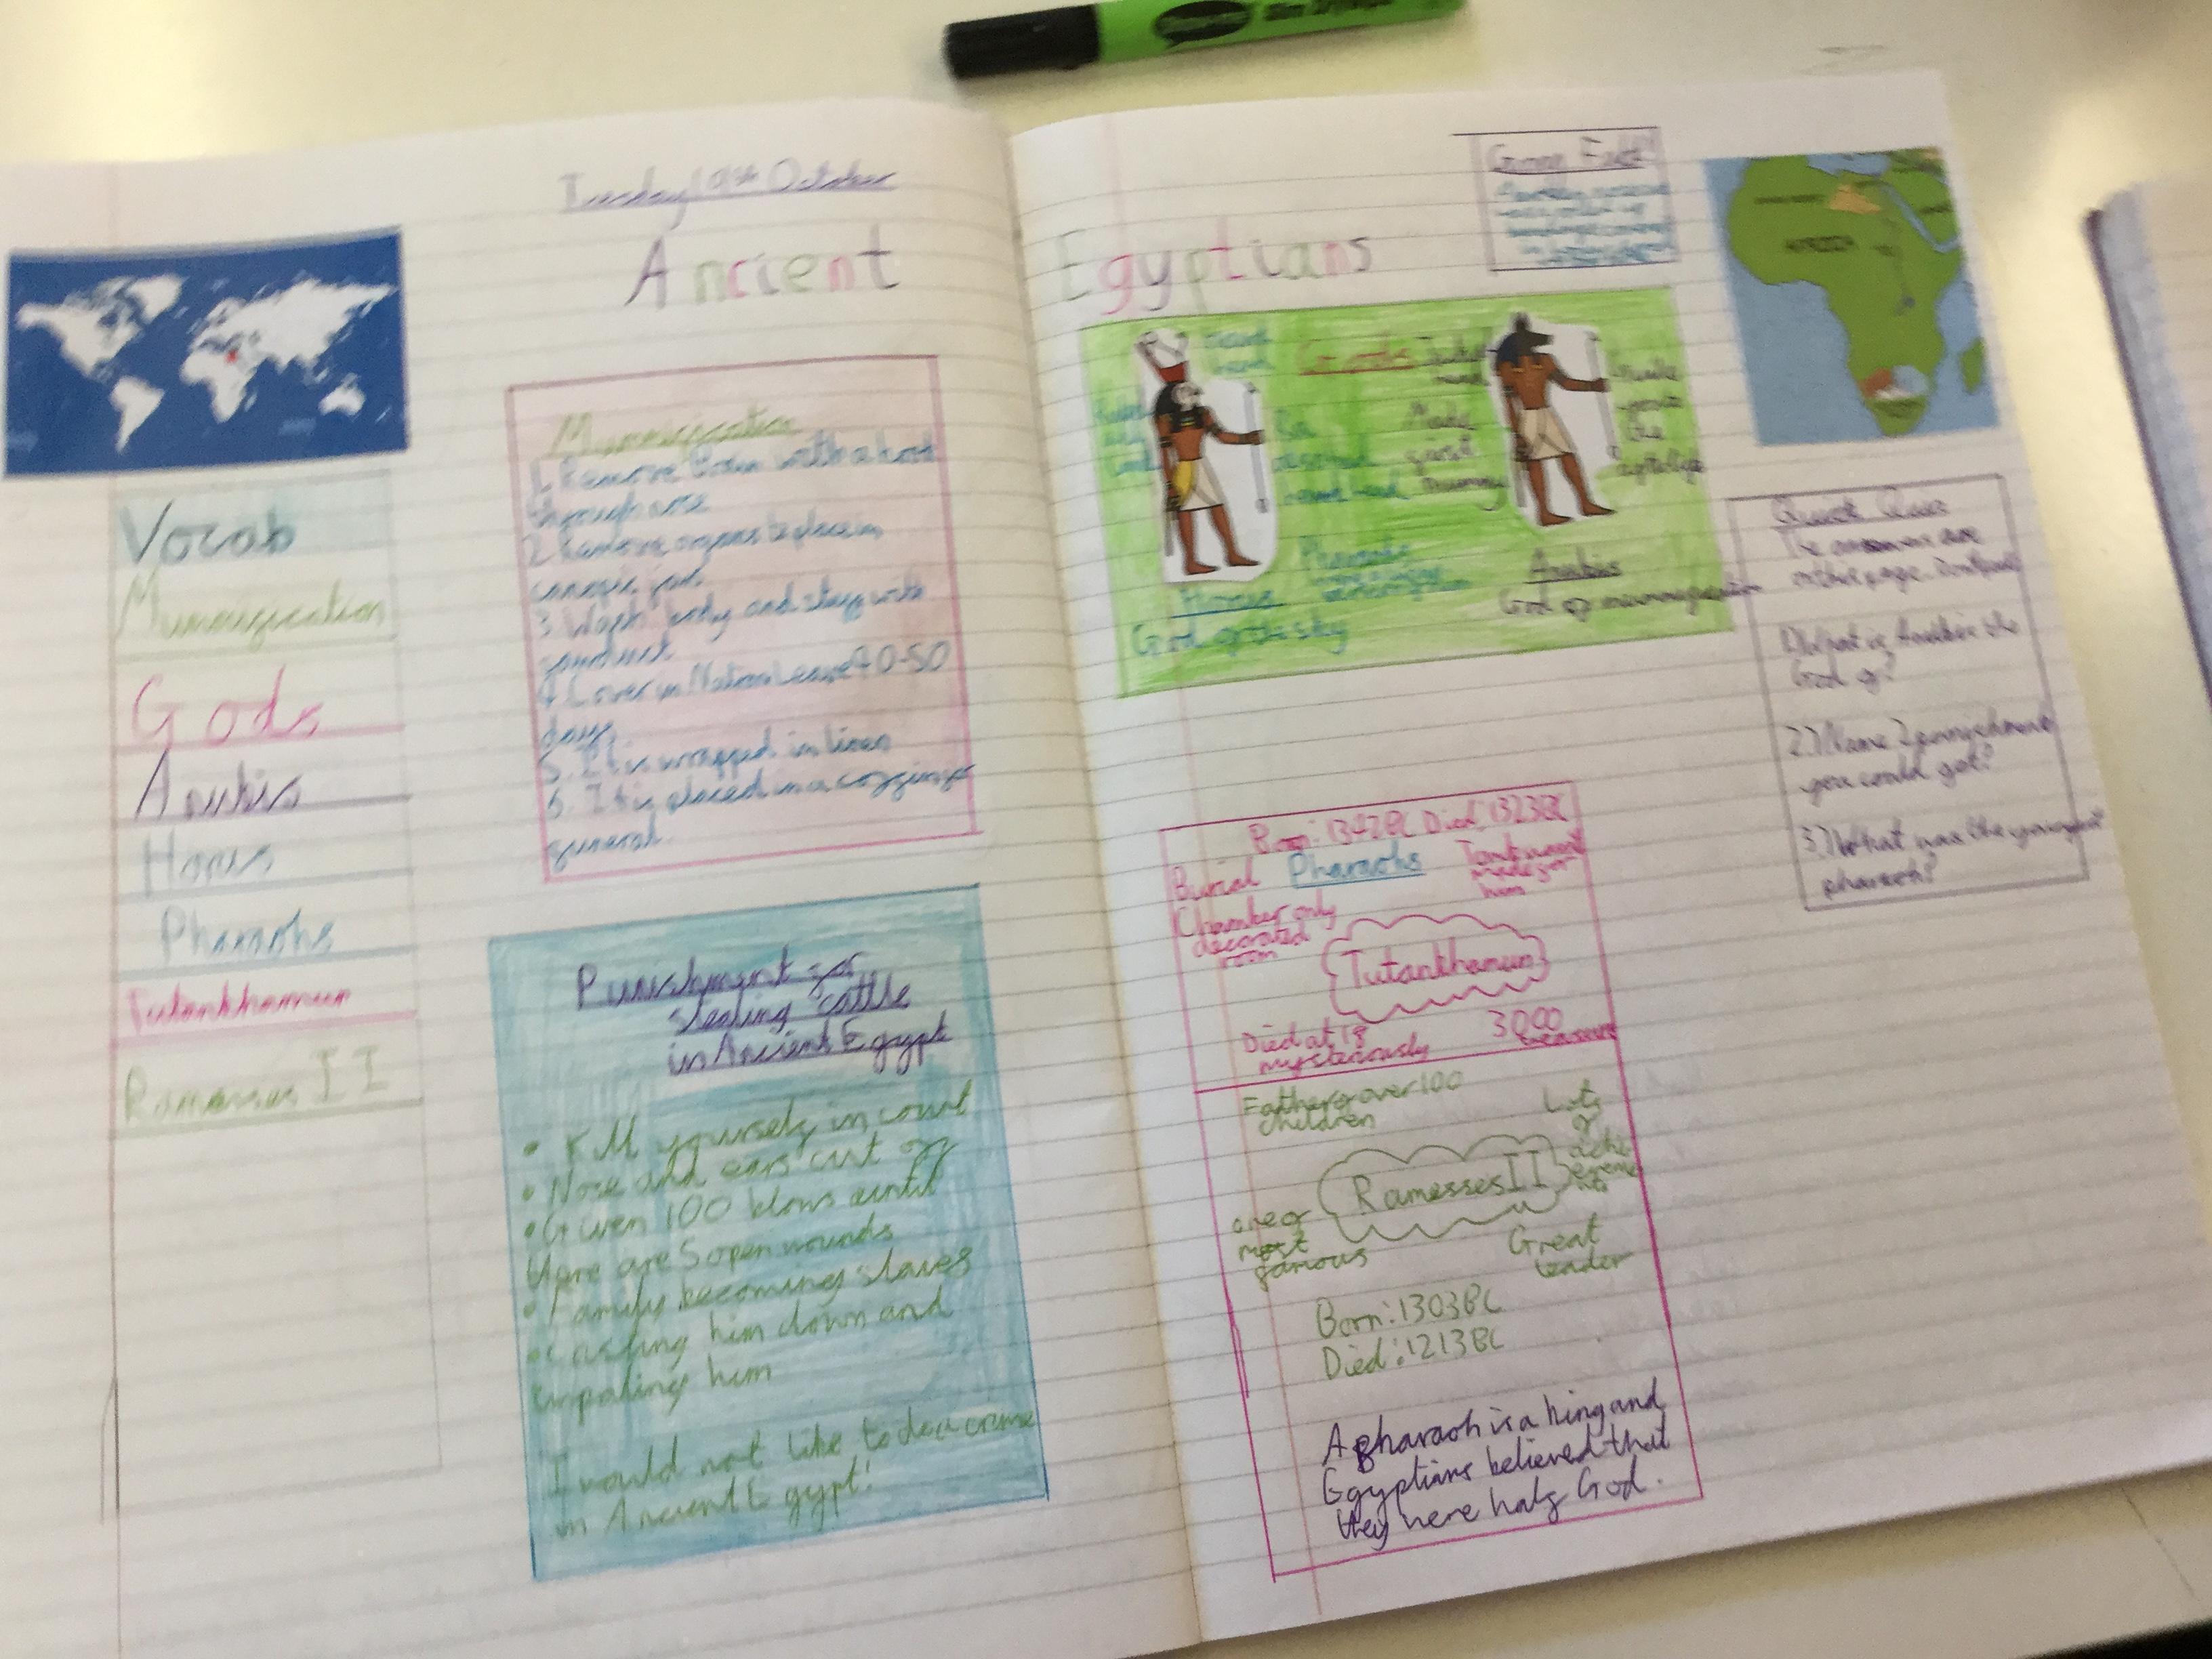 Tuesday October
Ancient Egyptians
Vocab
Mummification
Gods
Anubis
Horus
Pharaohs
Tutankhamun
Ramesses II
Mummification
1. Remove Brain with a hook
through nose
2. Remove organs to place in
canopic jars
3. Wash body and stuff with
4. Cover in Natron Leave 40-50
days
5. It is wrapped in linen
6. It is placed in a coffin for
funeral.
Punishment for
stealing cattle
in Ancient Egypt
• Kill yourself in court
• Nose and ears cut off
• Given 100 blows until
there are 5 open wounds
• Family becoming slaves
• Casting him down and
impaling him
I would not like to do a crime
in Ancient Egypt!
Gore Fact!
Gods
Horus
God of the sky
Made
first
mummy
Guide
you to
the
afterlife
Anubis
God of mummification
AFRICA
Quick Quiz
The answers are
on the page.
1.) What is Anubis the
God of?
2.) Name 2 punishments
you could get?
3.) What was the youngest
pharaoh?
Born: 1342BC Died: 1323BC
Pharaohs
Burial
Chamber only
decorated
room
Tomb wasnt
made for
him
Tutankhamun
Died at 18
mysteriously
3000
treasures
Father of over 100
children
Lots
of
achi
eveme
nts
Ramesses II
one of
most
famous
Great
leader
Born: 1303BC
Died: 1213BC
A pharaoh is a king and
Egyptians believed that
they were half God.